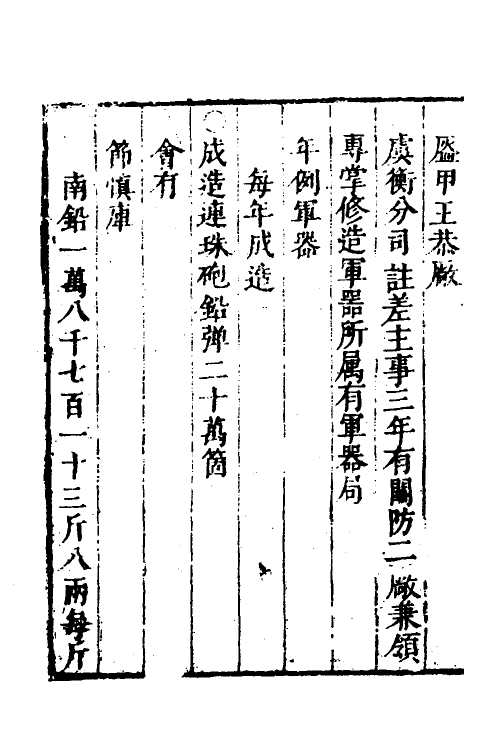 盔甲王恭廠
虞衡分司註差主事三年有關防二廠兼領
專掌修造軍器所属有軍器局
年例軍器
每年成造
○成造連珠砲鉛弹二十萬箇
會有
節慎庫
南鉛一萬八千七百一十三斤八兩每斤